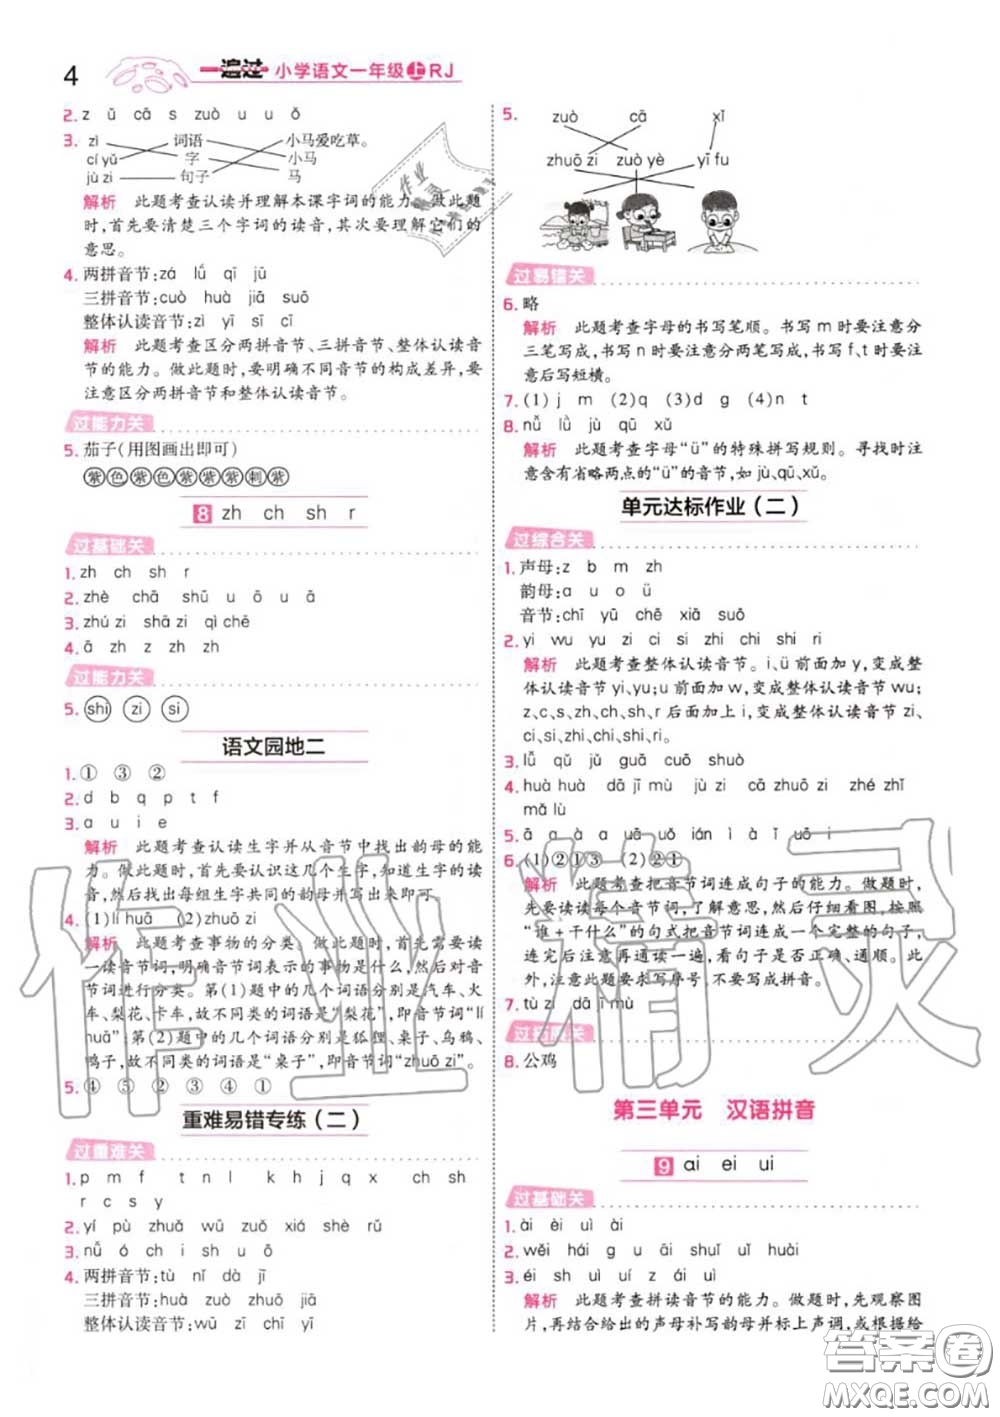 4
一遍过 小学语文一年级上RJ
2. z ǔ cā s zuò u u ǒ
3. zì 词语 小马爱吃草。
cí yǔ 字 小马
jù zi 句子 马
解析 此题考查认读并理解本课字词的能力。做此题
时,首先要清楚三个字词的读音,其次要理解它们的
意思。
4. 两拼音节:zá lǜ qī jū
三拼音节:cuò huà jiā suǒ
整体认读音节:zì yī sī cī
解析 此题考查区分两拼音节、三拼音节、整体认读音
节的能力。做此题时,要明确不同音节的构成差异,要
注意区分两拼音节和整体认读音节。
过能力关
5. 茄子(用图画出即可)
紫 色 紫 色 紫 紫 紫 刺 紫
8 zh ch sh r
过基础关
1. zh ch sh r
2. zhè chā shū u ō u ā
3. zhú zi shā zi qì chē
4. ā zh z zh zh
过能力关
5. shì zì sì
语文园地二
1. ① ③ ②
2. d b q p t f
3. a u ie
解析 此题考查认读生字并从音节中找出韵母的能
力。做此题时,首先要认识这几个生字,知道生字的读
音,然后找出每组生字共同的韵母并写出来即可。
4. (1)lí huā (2)zhuō zi
解析 此题考查事物的分类。做此题时,首先需要读
一读音节词,明确音节词表示的事物是什么,然后对音
节词进行分类。第(1)题中的几个词语分别是汽车、火
车、梨花、卡车,故不同类的词语是“梨花”,即音节词“lí
huā”;第(2)题中的几个词语分别是狐狸、桌子、乌鸦、
鸭子,故不同类的词语是“桌子”,即音节词“zhuō zi”。
5. ④ ⑤ ② ③ ④ ①
重难易错专练(二)
过重难关
1. p m f t n l g k h j x ch sh
r c s y
2. yí pù zhuā wū zuǒ xiá shè rǔ
3. nǚ ó ch i sh u ǒ
4. 两拼音节:tù nǐ dà jī
三拼音节:huà zuò zhuō jiā
整体认读音节:wū zī chī yī
5. zuò cā xǐ
zhuō zi zuò yè yī fu
过易错关
6. 略
解析 此题考查字母的书写笔顺。书写m时要注意分
三笔写成,书写n时要注意分两笔写成,书写f、t时要注
意后写短横。
7. (1)j m (2)q (3)d g (4)n t
8. nǚ lǜ jù qū xǔ
解析 此题考查字母“ü”的特殊拼写规则。寻找时注
意含有省略两点的“ü”的音节,如jù、qū、xǔ。
单元达标作业(二)
过综合关
1. 声母:z b m zh
韵母:a u o ü
音节:chī yū chē xiā suō
2. yi wu yu zi ci si zhi chi shi ri
解析 此题考查整体认读音节。i、ü前面加y,变成整
体认读音节yi、yu;u前面加w,变成整体认读音节wu;
z、c、s、zh、ch、sh、r后面加上i,变成整体认读音节zi、
ci、si、zhi、chi、shi、ri。
3. lǘ qǔ jǔ guō cuò shuò
4. huà huà dā jī mù jù zi cā zhuō zi zhé zhǐ
mǎ lù
5. ā à a uā uǒ ián ì à ī uō i
6. (1)②①③ (2)②①
解析 此题考查把音节词连成句子的能力。做题时,
先要读读每个音节词,了解意思,然后仔细看图,按照
“谁+干什么”的句式把音节词连成一个完整的句子,
连完后注意再通读一遍,看句子是否正确、通顺。此
外,注意此题要求写序号,不要写成拼音。
7. tù zi dā jī mù
过拓展关
8. 公鸡
第三单元 汉语拼音
9 ai ei ui
过基础关
1. ài èi uì ài
2. wěi hái g u āi shuǐ uǐ huài
3. éi sh uì uí z ái uí
解析 此题考查拼读音节的能力。做题时,先观察图
片,再结合给出的声母补写韵母并标上声调,或根据给
作业精灵
答案圈
MXQE.COM